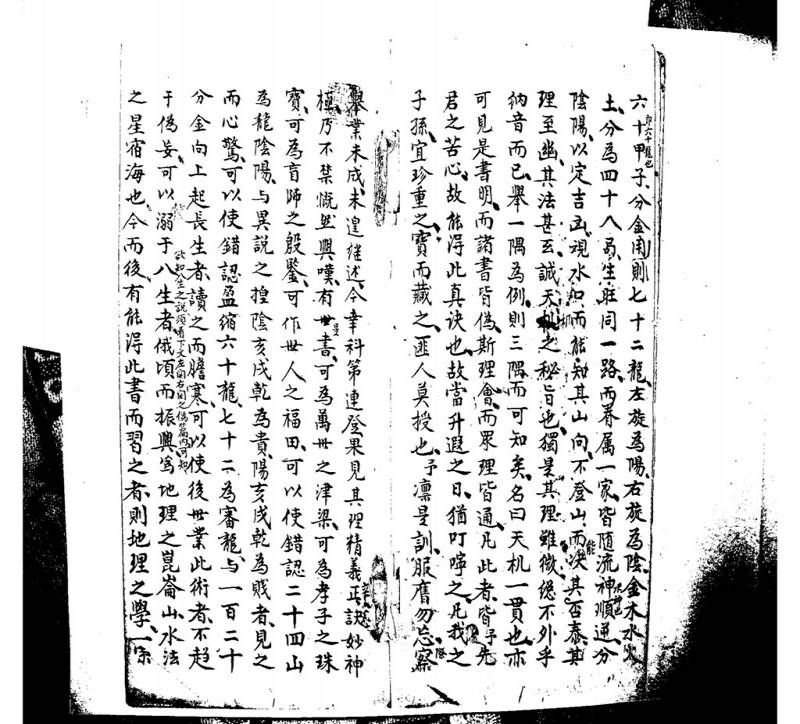 六十甲子、分金用則七十二龍、左旋為陽、右旋為陰、金木水火
即六十龍也
土、分為四十八局、生旺同一路、而眷属一家、皆随流神順逆、分
水神也
陰陽、以定吉凶、視水和而能知其山向、不登山而能決其否泰、其
理至幽、其法甚玄、誠天机之秘旨也、獨是其理雖微、總不外乎
納音而已、舉一隅為例、則三隅而可知矣、名曰天机一貫也、亦
可見是書明、而諸書皆偽、斯理會、而眾理皆通、凡此者、皆予先
君之苦心、故能得此真訣也、故當升遐之日、猶叮嚀之、凡我之
子孫、宜珍重之、寶而藏之、匪人莫授也、予凛是訓、服膺勿忘、察
舉業未成、未遑継述、今幸科第連登、果見其理精義正、訣妙神
極、乃不禁慨然興嘆、有是書、可為萬世之津梁、可為孝子之珠
寶、可為盲師之殷鑒、可作世人之福田、可以使錯認二十四山
為龍陰陽、与異說之撞陰亥戌乾為貴、陽亥戌乾為賤者、見之
而心驚、可以使錯認盈縮六十龍、七十二為審龍、与一百二十
分金向上起長生者、讀之而膽寒、可以使後世業此術者、不趋
于偽妄、可以溺于八生者、俄頃而振興、為地理之崑崙山、水法
之星宿海也、今而後、有能得此書而習之者、則地理之學、一宗